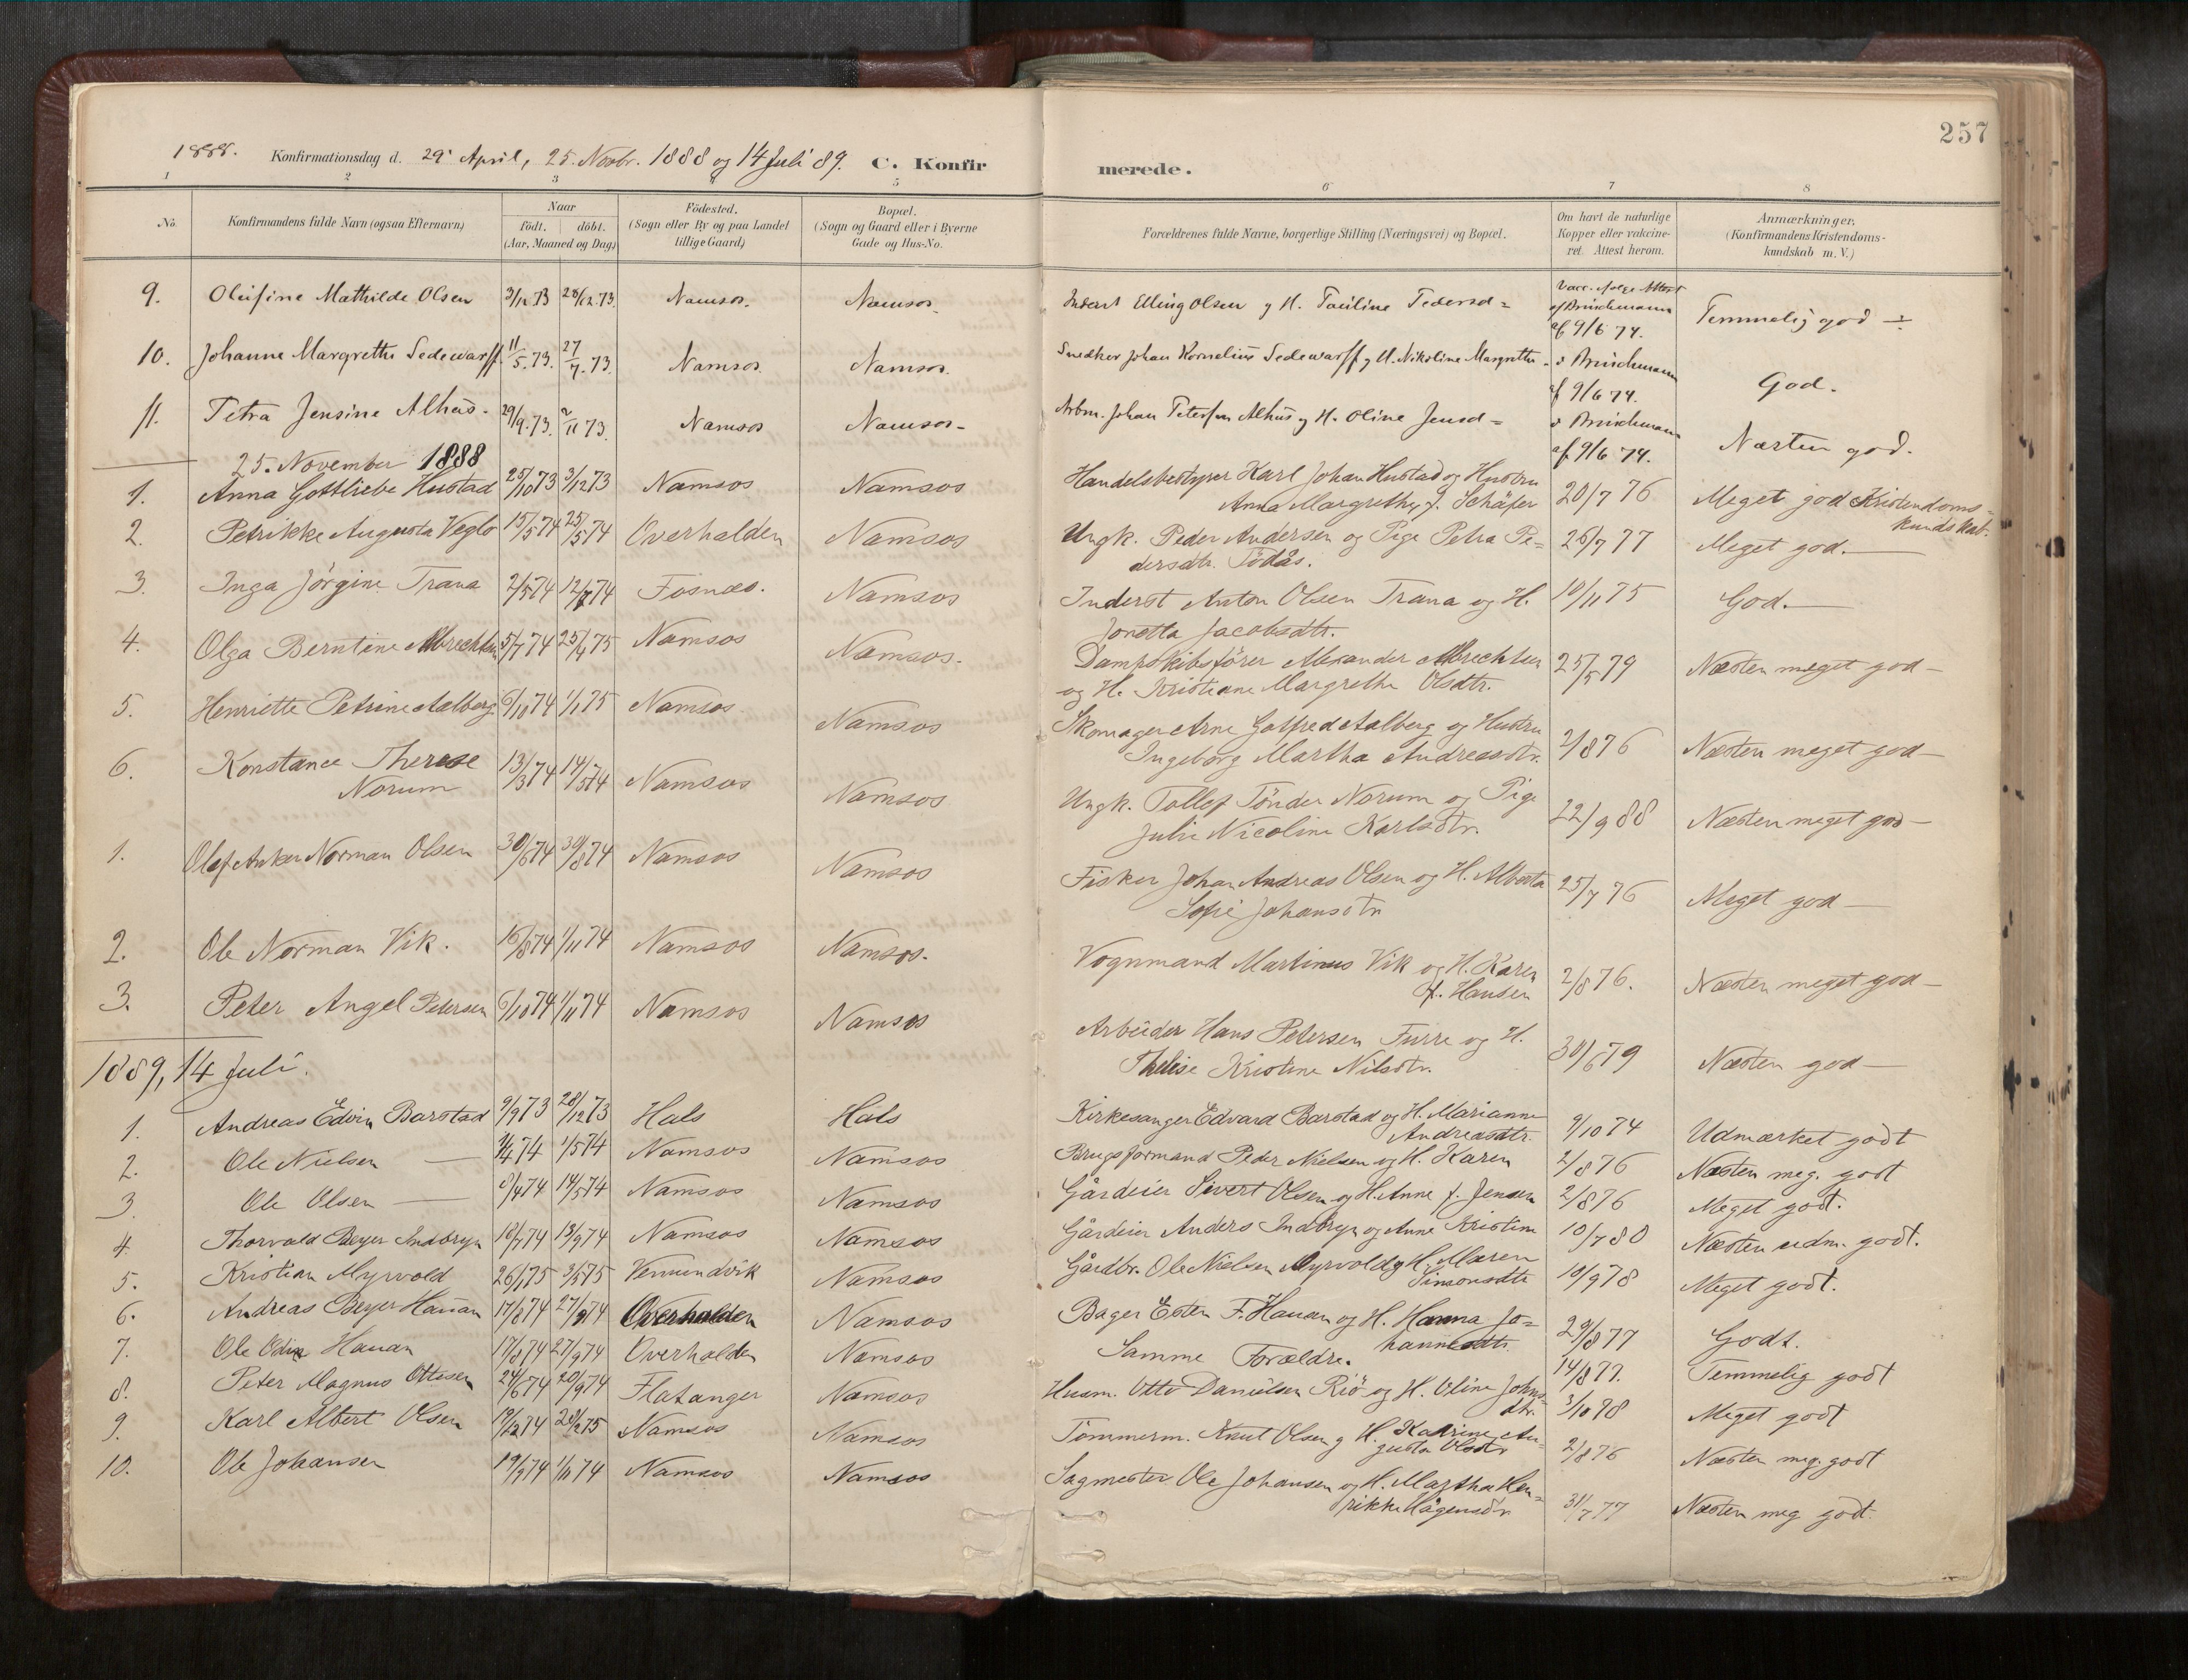 257
1888. Konfirmationsdag d. 29 April, 25. Novbr. 1888 og 14 Juli 89. C. Konfirmerede.
1 2 3 4 5 6 7 8
No. Konfirmandens fulde Navn (ogsaa Efternavn) Naar födt. döbt. (Aar, Maaned og Dag) Födested. (Sogn eller By og paa Landet tillige Gaard) Bopæl. (Sogn og Gaard eller i Byerne Gade og Hus-No. Forældrenes fulde Navne, borgerlige Stilling (Næringsvei) og Bopæl. Om havt de naturlige Kopper eller vakcineret. Attest herom. Anmærkninger. (Konfirmandens Kristendomskundskab m. V.)
9. Olufine Mathilde Olsen 3/12.73 28/12.73. Namsos. Namsos. Inderst Elling Olsen g H. Pauline Pedersd= Vacc. ifølge Attest af Brüchmann af 9/6 74. Temmelig god ÷
10. Johanne Margrethe Sedewarff. 11/5.73. 27/7.73. Namsos. Namsos. Snedker Johan Kornelius Sedewarff g H. Nikoline Margrethe - Brüchmann af 9/6 74. God.
11. Petra Jensine Alhus. 29/9.73. 2/11 73. Namsos Namsos- Arbm. Johan Petersen Alhus g H. Oline Jensd= Brüchmann af 9/6 74. Næsten god.
25. November 1888
1. Anna Gottliebe Hustad 25/10 73 3/12 73 Namsos Namsos Handelsbestyrer Karl Johan Hustad og Hustru
Anna Margrethe f. Schäfer 20/7 76 Meget god Kristendoms=
kundskab.
2. Petrikke Augusta Veglo 15/5 74 25/5 74 Overhalden Namsos Ungk. Peder Andersen og Pige Petra Pe=
dersdtr. Tödås. 26/7 77 Meget god.
3. Inga Jörgine Trana 2/5 74 12/7 74 Fosnæs. Namsos Inderst Anton Olsen Trana og H.
Jonetta Jacobsdtr. 10/11 75 God.
4. Olga Berntine Albrechtsen 5/7 74 25/4 75 Namsos Namsos. Dampskibsfører Alexander Albrechtsen
og H. Kristiane Margrethe Olsdtr. 25/5 79 Næsten meget god
5. Henriette Petrine Aalberg 6/10 74 1/1 75 Namsos. Namsos Skomager Arne Gotfred Aalberg og Hustru
Ingeborg Martha Andreasdtr. 2/8 76 Næsten meget god
6. Konstance Therese
Norum 13/3 74 14/5 74 Namsos Namsos Ungk. Tollef Tönder Norum og Pige
Julie Nicoline Karlsdtr. 22/9 88 Næsten meget god
1. Olaf Anker Norman Olsen 30/6 74 30/8 74 Namsos Namsos Fisker Johan Andreas Olsen og H. Alberta
Sofie Johansdtr 25/7 76 Meget god
2. Ole Norman Vik. 16/8 74 1/11 74 Namsos Namsos. Vognmand Martinus Vik og H. Karen
f. Hansen 2/8 76. Næsten meget god
3. Peter Angel Petersen 6/10 74 1/11 74 Namsos Namsos Arbeider Hans Petersen Furre og H.
Kristine Nilsdtr. 30/6 79 Næsten god
1889, 14 Juli.
1. Andreas Edvin Barstad 9/9 73 28/12 73 Hals Hals Kirkesanger Edvard Barstad og H. Marianne
Andreasdtr. 9/10 74 Udmærket godt
2. Ole Nielsen 1/4 74 1/5 74 Namsos Namsos Brugsformand Peder Nielsen og H. Karen 2/8 76 Næsten meg. godt
3. Ole Olsen 8/4 74 14/5 74 Namsos Namsos Gårdeier Sivert Olsen og H. Anne f. Jensen 2/8 76 Meget godt.
4. Thorvald Beyer Indbryn 18/7 74 13/9 74 Namsos Namsos Gårdeier Anders Indbryn og Anne Kristine 10/7 80 Næsten udm. godt.
5. Kristian Myrvold 26/1 75 3/5 75 Vemundvik Namsos Gårdbr. Ole Nielsen Myrvold og H. Maren
Simonsdtr 10/9 78 Meget godt.
6. Andreas Beyer Hauan 17/8 74 27/9 74 Overhalden Namsos Bager Esten F. Hauan og H. Hanna Jo=
hannesdtr. 29/8 77 Godt.
7. Ole Odin Hauan 17/8 74 27/9 74 Overhalden Namsos Samme Forældre. 14/8 77. Temmelig godt
8. Peter Magnus Ottesen 24/6 74 20/9 74 Flatanger Namsos Husm. Otto Danielsen Riö og H. Oline Johns=
dtr. 3/10 78 Meget godt
9. Karl Albert Olsen 19/12 74 28/2 75 Namsos Namsos Tömmerm. Knut Olsen g H. Katrine Au=
gusta Olsdtr 2/8 76 Næsten meg. godt
10. Ole Johansen 19/9 74 1/11 74 Namsos Namsos Sagmester Ole Johansen og H. Martha Hen=
rikke Hågensdtr 31/7 77 Næsten meg godt.